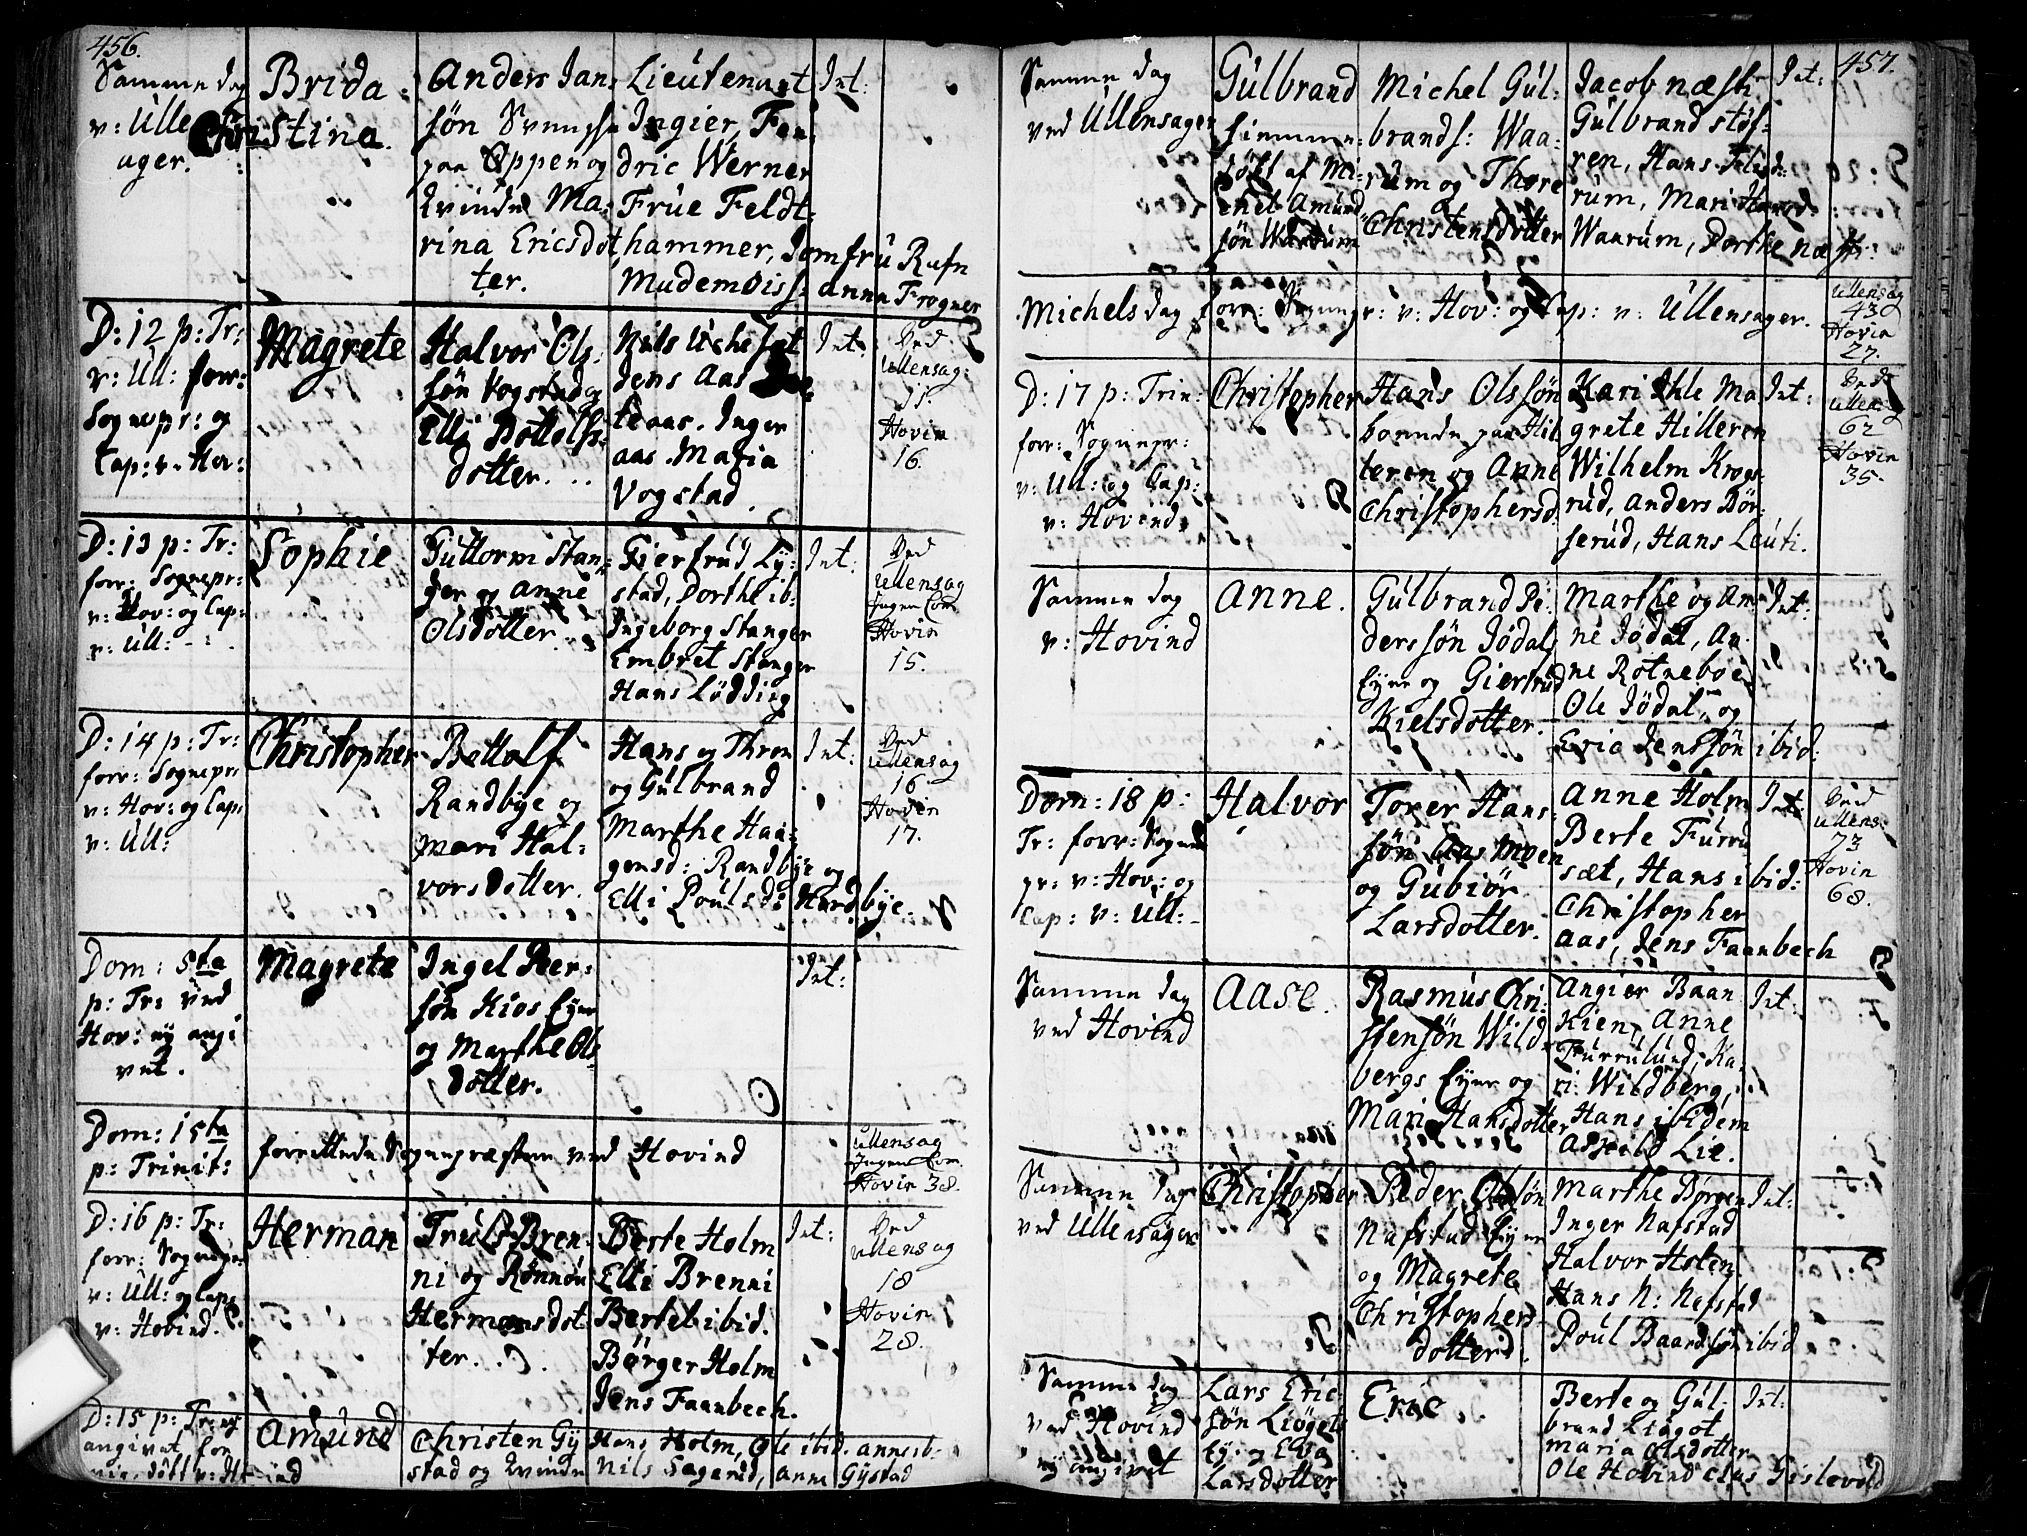 456.
Samme dag
v: Ulle
ager.
Brida
Christina.
Anders Jan
søn
paa Oppen og
Kvinde Ma:
rina Ericsdot
ter.
Lieutenant
Ingier, Fen
dric Werner
Frue Feldt:
hammer, Jomfru Rafn
Mademoiss: anna Frogner
Int:
D: 12 p: Tr:
v: Ull: forr:
Sognepr: og
Cap: v. Hov:
Magrete
Halvor Ols:
søn Vogstad og
Elli Bottolfs
dotter.
Jens Aas
teaas. Inger
aas. Maria
Vogstad.
Int.
Ved
Ullensag:
11.
Hovin
16.
D: 13 p: Tr:
forr: Sognepr:
v: Hov: og Cap:
v: Ull:
Sophie
Guttorm Stan:
ger og Anne
Olsdotter.
Giertrud Ly:
stad, Dorthe ib:
Ingeborg Stanger
Embret Stanger
Hans Lødding
Int:
Ved
Ullensag
Ingen Com
Hovin
15.
D: 14 p: Tr:
forr: Sognepr:
v: Hov: og Cap:
v: Ull:
Christopher
Bottolf
Randbye og
Mari Hal:
vorsdotter.
Hans og Thron
og Gulbrand
Marthe Haa:
gensd: Randbye og
Elli Poulsd: Nordbye.
Int:
Ved
Ullensag
16
Hovin
17.
Dom: 5ta
p: Tr: ved
Hov: ey angi
vet.
Magrete
Ingel Peer:
søn Kios Eyer
og Marthe Ols
dotter.
Int:
Dom: 15ta
p: Trinit:
forrettede Sognepræsten ved Hovind
Ullensag
Ingen Com.
Hovin 38.
D: 16 p: Tr:
forr: Sognepr:
v: Ull: og Cap:
v: Hovind.
Herman
Truls Bren:
ni og Rønnou
Hermansdot
ter.
Berte Holm
Elli Brenni
Bertel ibid.
Børger Holm
Jens Faanbech.
Int:
Ved
Ullensag
18
Hovin
28.
D: 15 p: Tr: ey
angivet, for
døbt v: Hovind
Amund
Christen Gy
stad og Kvinde
Hans Holm, Ole ibid. Anne ib:
Nils Sagerud, Anna Gystad
457.
Samme dag
ved Ullensager
Gulbrand
hiemme:
døbt af Mi:
chel Amund
søn Waarum
Michel Gul:
brands: Waa:
rum og Thore
Christensdotter
Jacob Næsti
Gulbrand støf:
ren, Hans
rum, Mari
Waarum, Dorthe Næsti:
Int:
Michels dag forr: Sognepr: v: Hov: og Cap: v: Ullensager.
Ullensag
43
Hovin
27.
D: 17 p: Trin:
forr: Sognepr:
v: Ull: og Cap:
v: Hovind.
Christopher
Hans Olssøn
boende paa Hil
leren og Anne
Christophersd.
Kari Ihle Ma
grete Hilleren
Wilhelm Krogs:
rud, Anders Bør:
serud, Hans Leuti.
Int:
Ved
Ullensag
62
Hovin
35.
Samme dag
v: Hovind
Anne.
Gulbrand Pe:
derssøn Jødal
Eyer og Giertrud
Kielsdotter.
Marthe og An:
ne Jødal, An:
ne Rotneboe
Ole Jødal, og
Eric Jenssøn ibid:
Int:
Dom: 18 p:
Tr: forr: Sogne
pr: v: Hov: og
Cap: v: Ull:
Halvor
Torer Hans:
søn Aas Moen
og Gubiør
Larsdotter.
Anne Holm
Berte Furru
sæt, Hans ibid:
Christopher
Aas, Jens Faanbech
Int:
Ved
Ullens:
73
Hovin
68.
Samme dag
ved Hovind
Aase.
Rasmus Chri:
stensøn Wild:
bergs Eyer og
Mari Hansdotter
Angier Baan
Kien, Anne
Furrulund, Ka:
ri Wildberg,
Hans ibidem
Askild Lie.
Int:
Samme dag
ved Ullensager
Christopher
Peder Olssøn
Nafstad Eyer
og Magrete
Christophers
dotter.
Marthe Børgen
Inger Nafstad
Halvor Holen
Hans N: Nafstad
Poul Baardsøn ibid
Int:
Samme dag
ved Hovind
ey angivet
Lars Eric
søn Liøgets
Ey: og Elsa
Larsdotter
Eric
Berte og Gul:
brand Liøgot
Maria Olsdotter
Ole Hovind Clas Gislevold
Int: